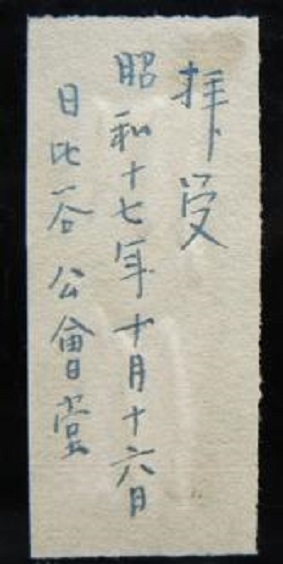 拝受
昭和十七年十月十六日
日比谷公會堂